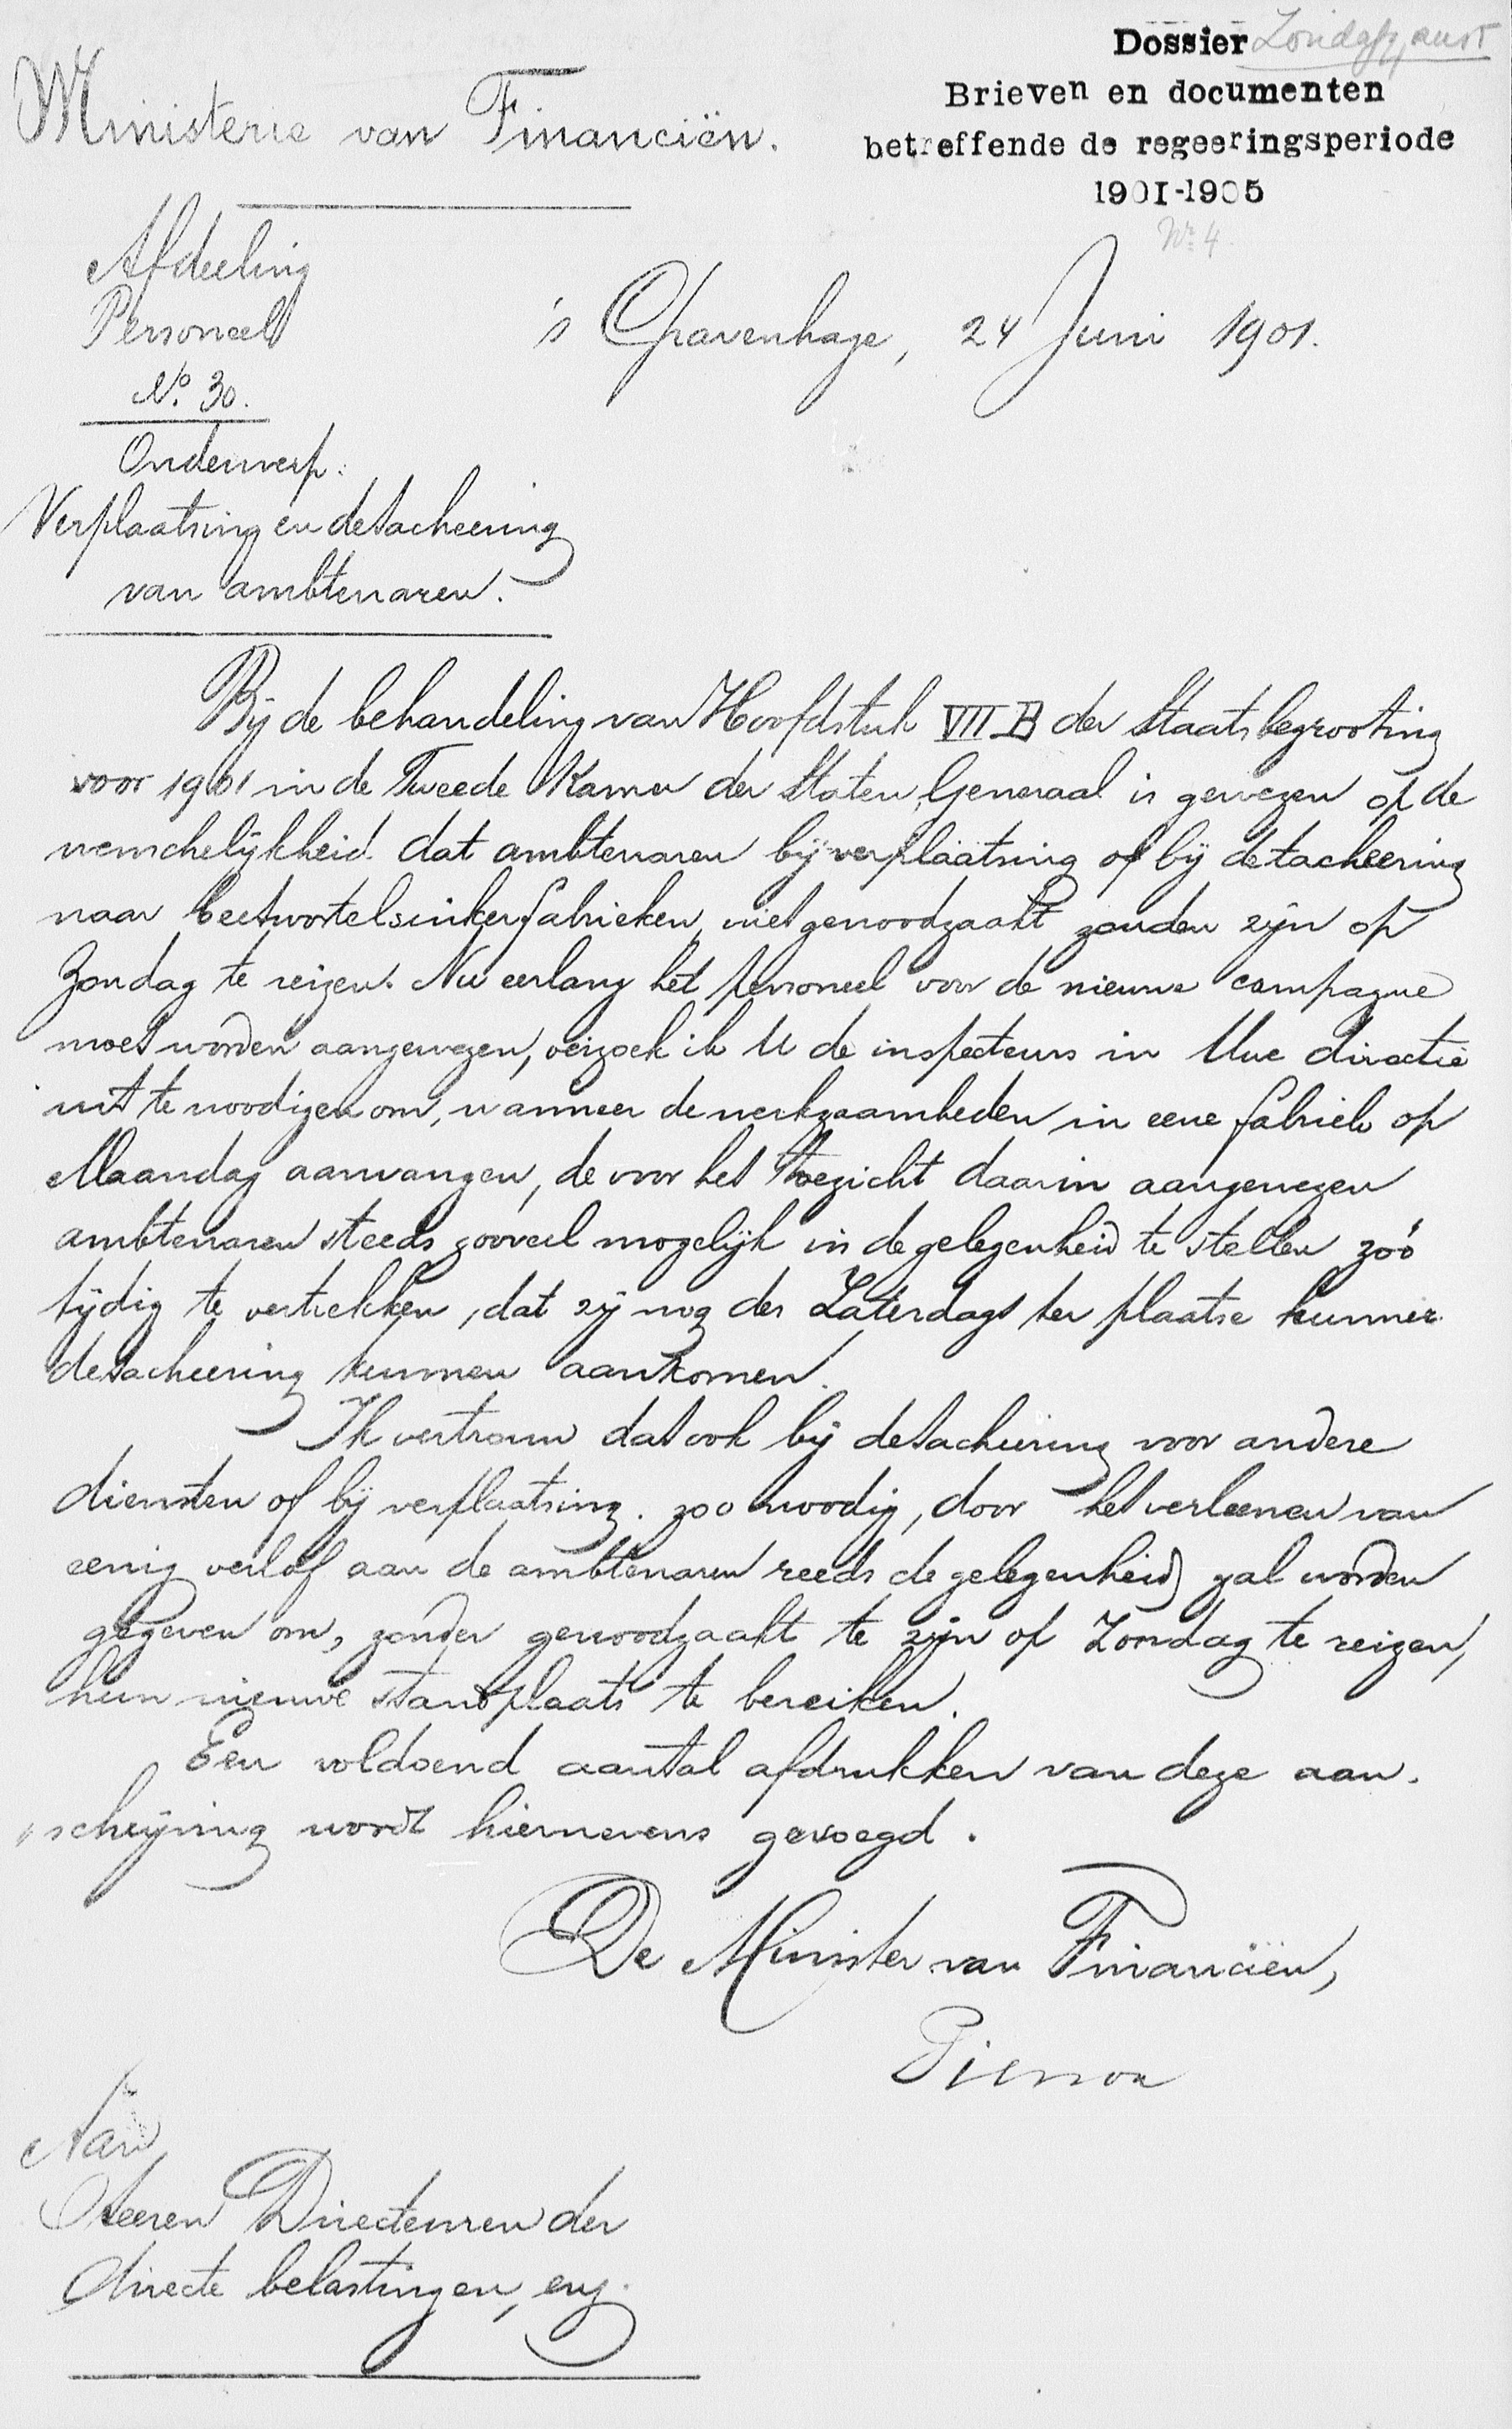 Dossier
Brieven en documenten
betreffende de regeeringsperiode
1901-1905
No 4
Ministerie van Financiën.
Afdeeling
Personeel
No. 30.
's Gravenhage, 24 Juni 1901.
Onderwerp:
Verplaatsing en detacheering
van ambtenaren.
Bij de behandeling van Hoofdstuk VII B der Staatsbegrooting
voor 1901 in de Tweede Kamer der Staten Generaal is gewezen op de
wenschelijkheid dat ambtenaren bij verplaatsing of bij detacheering
naar beetwortelsuikerfabrieken, niet genoodzaakt zouden zijn op
Zondag te reizen. Nu eerlang het personeel voor de nieuwe campagne
moet worden aangewezen, verzoek ik U de inspecteurs in Uwe directie
uit te noodigen om, wanneer de werkzaamheden in eene fabriek op
Maandag aanvangen, de voor het toezicht daarin aangewezen
ambtenaren steeds zooveel mogelijk in de gelegenheid te stellen zóó
tijdig te vertrekken, dat zij nog des Zaterdags ter plaatse hunner
detacheering kunnen aankomen.
Ik vertrouw dat ook bij detacheering voor andere
diensten of bij verplaatsing. zoo noodig, door het verleenen van
eenig verlof aan de ambtenaren reeds de gelegenheid zal worden
gegeven om, zonder genoodzaakt te zijn op Zondag te reizen,
hun nieuwe standplaats te bereiken.
Een voldoend aantal afdrukken van deze aan-
schrijving wordt hiernevens gevoegd.
De Minister van Financiën,
Pierson
Aan
Heeren Directeuren der
directe belastingen, enz.